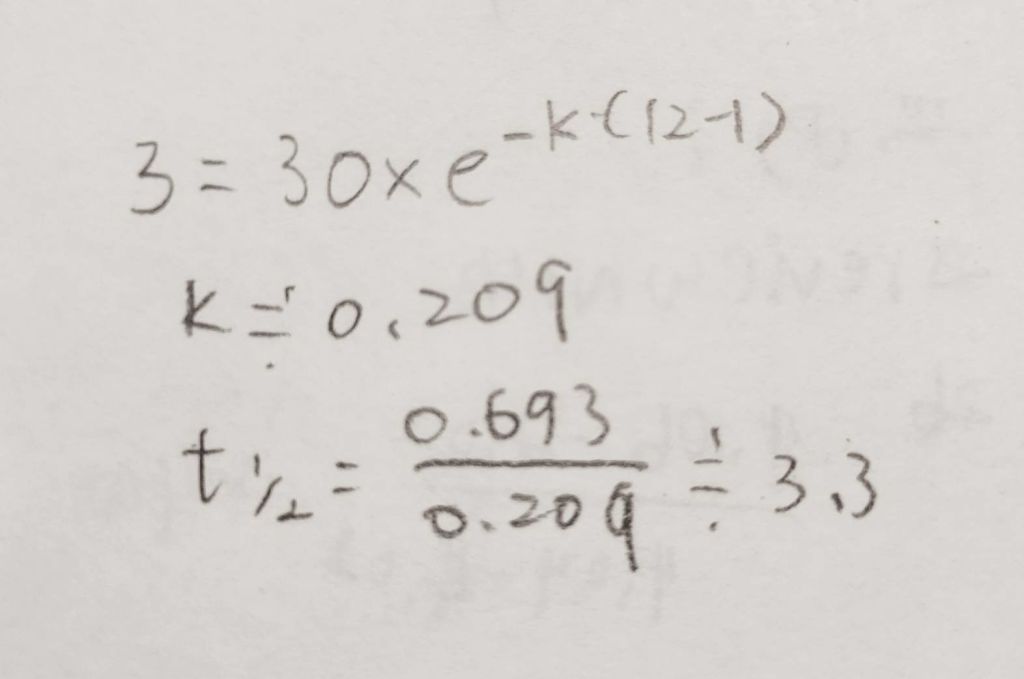 3 = 30 × e^{-k·(12-1)}
k ≒ 0.209
t 1/2 = 0.693/0.209 ≒ 3.3